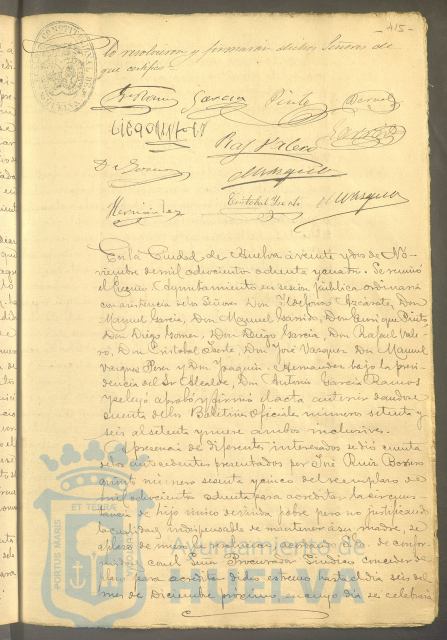 -415-
lo resolvieron y firmaron dichos Señores de
que certifico.
García Pinto Bernal
Diego García
Raf Valero
D. Gomez
Vazquez
Hernandez Cristobal Yuste Vazquez
En la Ciudad de Huelva á veinte y dos de No-
viembre de mil ochocientos ochenta y cuatro. Se reunió
el Excmo. Ayuntamiento en sesion pública ordinaria
con asistencia de los Señores Don Ildefonso Azcárate, Don
Manuel García, Don Manuel Garrido, Don Enrique Pinto,
Don Diego Gomez, Don Diego García, Don Rafael Vale-
ro, Don Cristobal Yuste, Don José Vazquez, Don Manuel
Vazquez Perez y Don Joaquin Hernandez bajo la pre-
sidencia del Sr. Alcalde, Don Antonio García Ramos
y se leyó aprobó y firmó el acta anterior dandose
cuenta de los Boletines Oficiales números setenta y
seis al setenta y nueve ambos inclusive.
A presencia de diferentes interesados se dió cuenta
de los antecedentes presentados por José Ruiz Borrero
quinto número sesenta y cinco del reemplazo de
mil ochocientos ochenta para acreditar la circuns-
tancia de hijo único de viuda pobre pero no justificando
la cualidad indispensable de mantener á su madre, se
acordó de confor-
midad con el Señor Procurador Síndico conceder
para acreditar dicho estremo hasta el dia seis del
mes de Diciembre próximo en cuyo dia se celebrará
PORTUS MARIS
ET TERRAE
Ayuntamiento de
HUELVA